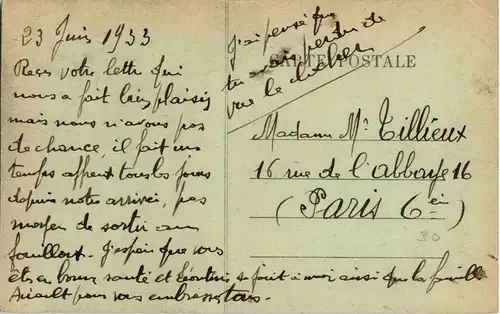 23 Juin 1933
Reçu votre lettre qui
nous a fait bien plaisir
mais nous n'avons pas
de chance, il fait un
temps affreux tous les jours
depuis notre arrivée, pas
moyen de sortir au
J'espère que vous
êtes en bonne santé et se joint à moi ainsi que la famille
pour vous embrasser tous.
J'ai pensé que
tu avais perdu de
vue le
CARTE POSTALE
Madame Mce Tillieux
16 rue de l'abbaye 16
(Paris 6e)
30